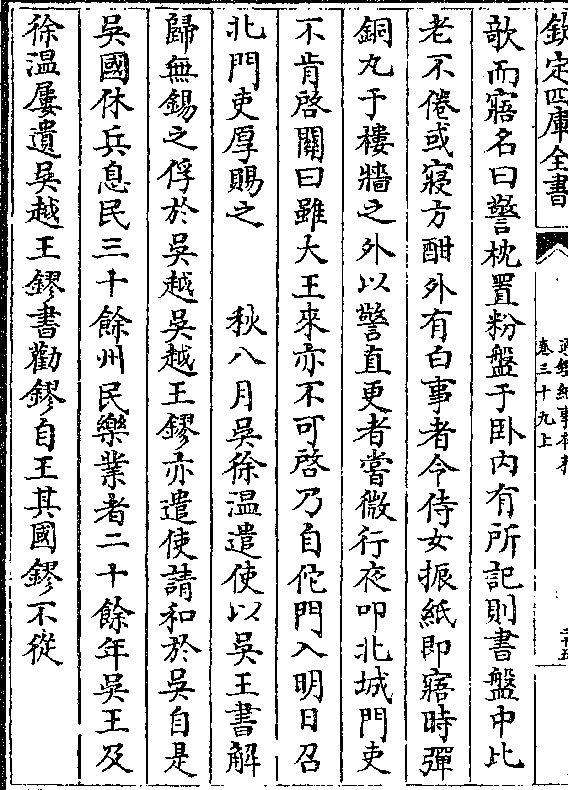 欽定四庫全書
通鑑紀事本末
卷三十九上
二十五
欹而寤名曰警枕置粉盤于卧内有所記則書盤中比
老不倦或寢方酣外有白事者令侍女振紙即寤時彈
銅丸于樓牆之外以警直更者嘗微行夜叩北城門吏
不肯啓關曰雖大王來亦不可啓乃自佗門入明日召
北門吏厚賜之　　秋八月吳徐温遣使以吳王書解
歸無錫之俘於吳越吳越王鏐亦遣使請和於吳自是
吳國休兵息民三十餘州民樂業者二十餘年吳王及
徐温屢遺吳越王鏐書勸鏐自王其國鏐不從